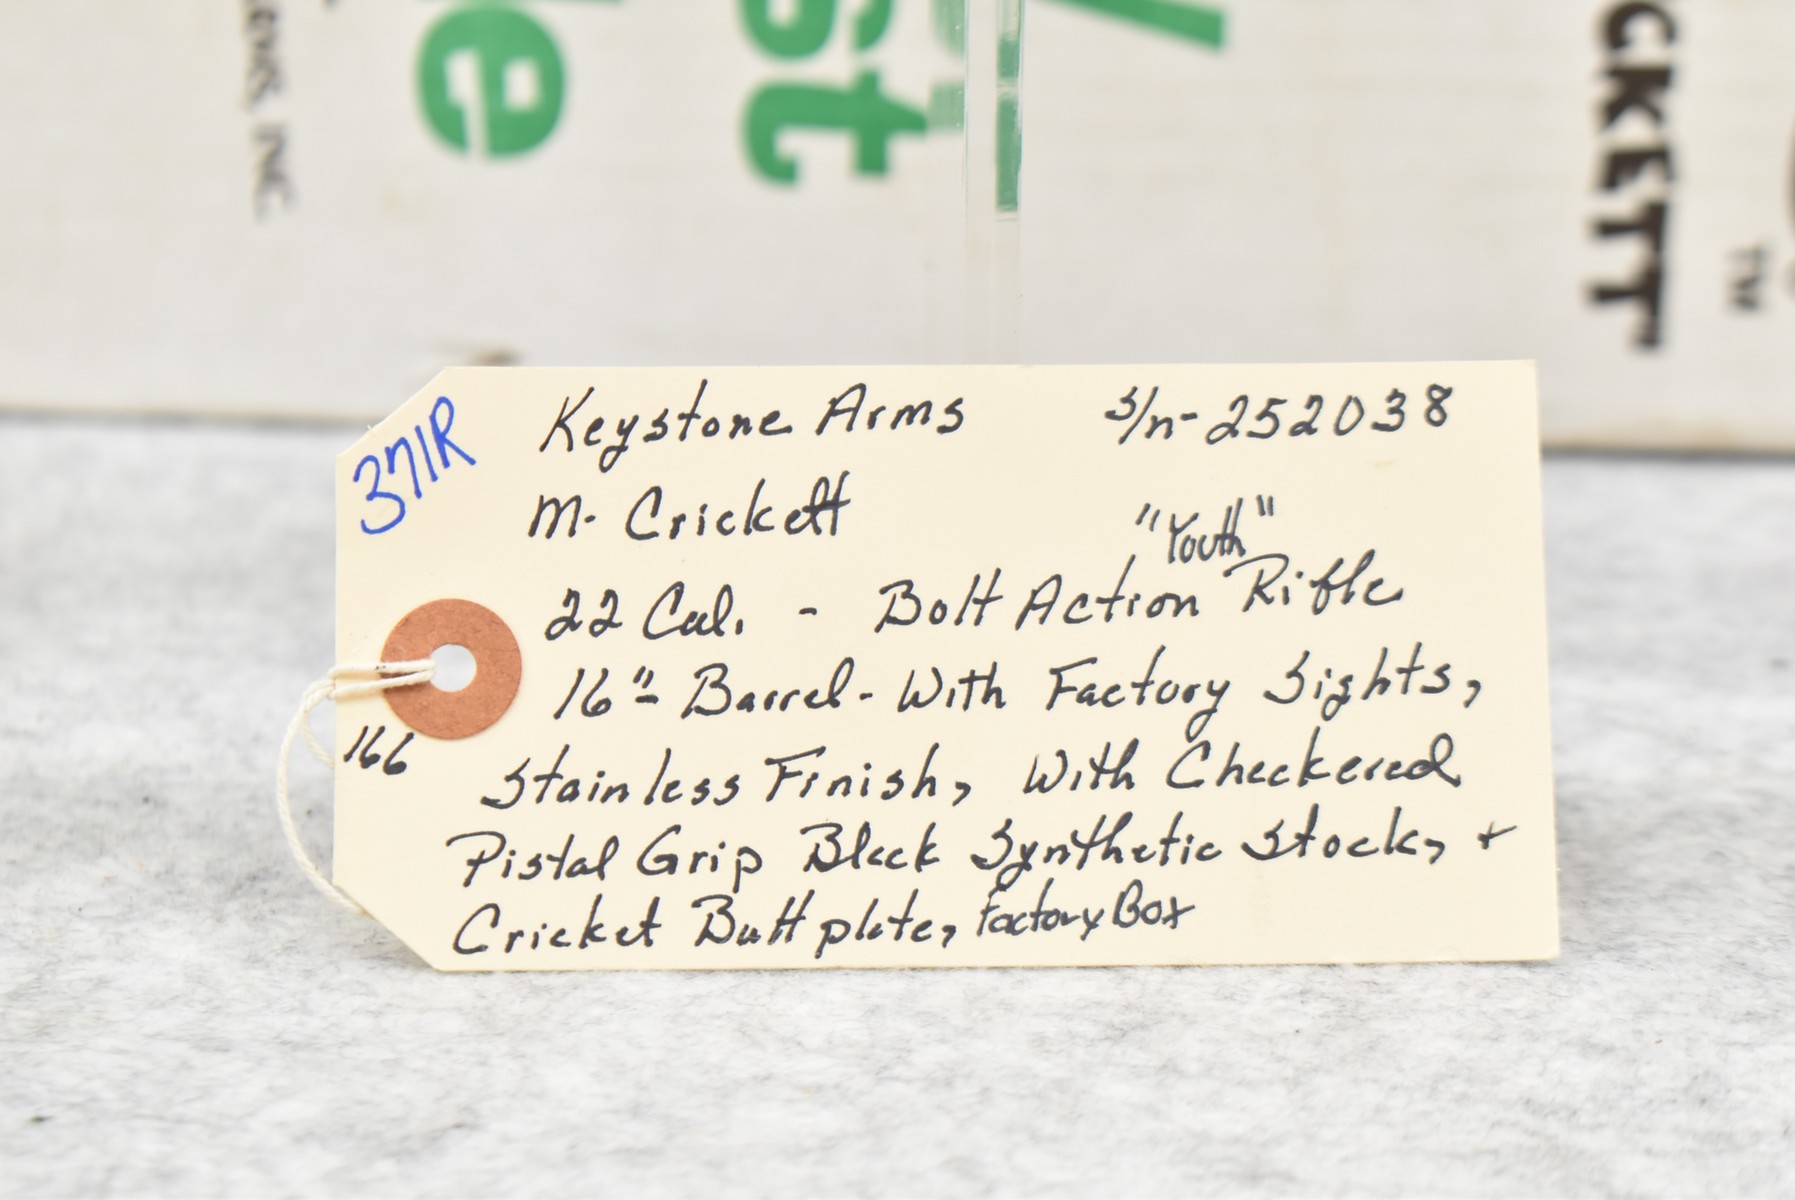 de
st
CKETT"
TM
INC.
371R
Keystone Arms s/n-252038
M- Crickett
"Youth"
22 Cal. - Bolt Action Rifle
16"- Barrel- With Factory Sights,
166
Stainless Finish, With Checkered
Pistal Grip Black Synthetic Stock, +
Cricket Buttplate, Factory Box